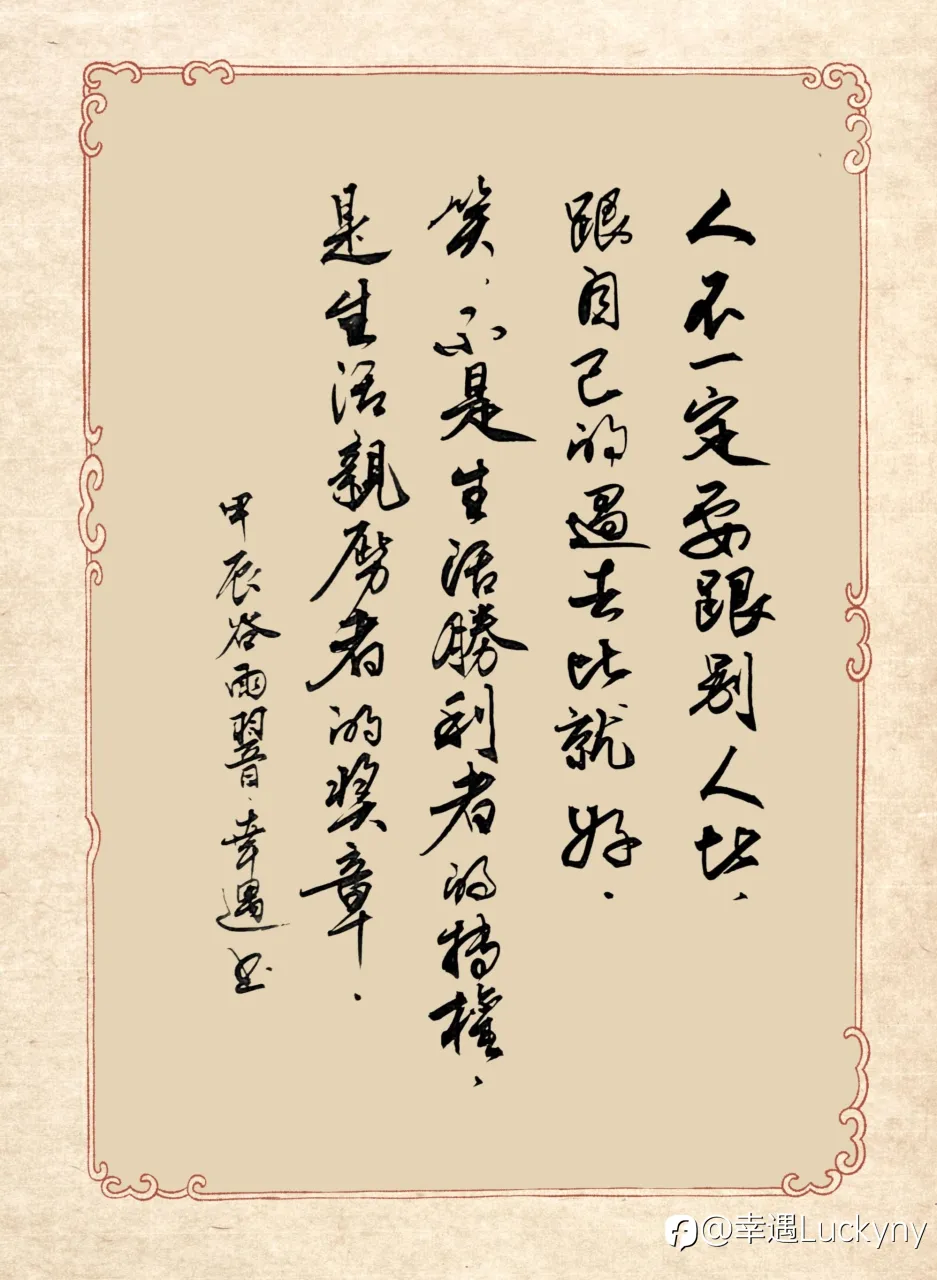 人不一定要跟别人比、
跟自己的過去比就好．
笑、不是生活勝利者的特權、
是生活親歷者的奖章．
甲辰谷雨翌日、幸遇书
@幸遇Luckyny